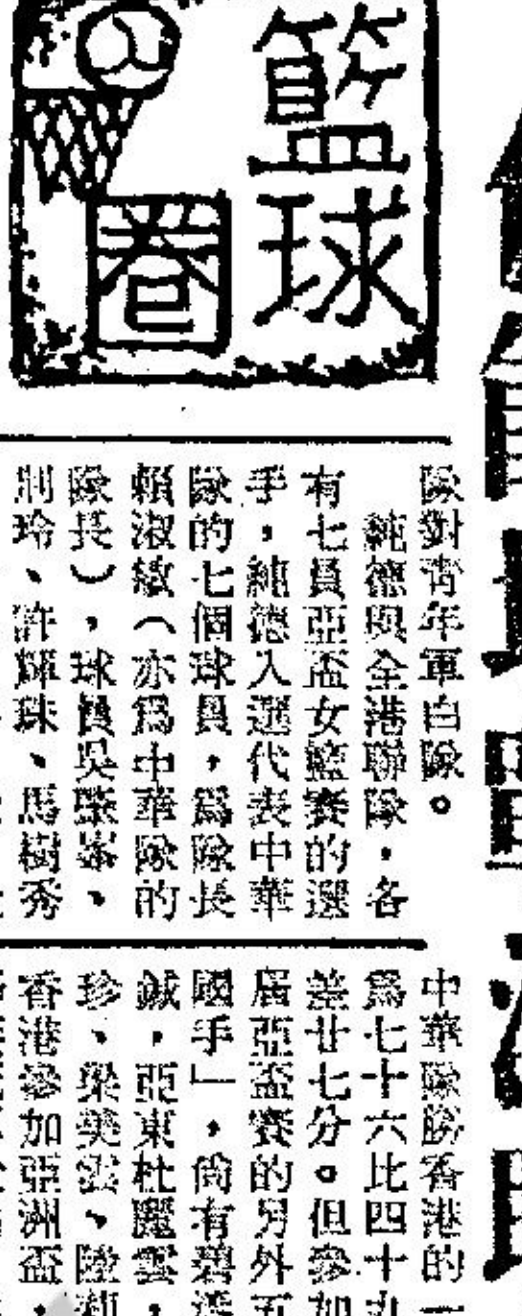 籃球
圈
隊對青年軍白隊。
純德與全港聯隊，各
有七員亞盃女籃賽的選
手，純德入選代表中華
隊的七個球員，爲隊長
賴淑敏（亦爲中華隊的
隊長），球員吳
玲、許輝珠、馬樹秀
中華隊勝香港的
爲七十六比四十九
差廿七分。但參加
屆亞盃賽的另外五
國手」，尙有碧
誠，亞東杜麗雲，
珍、梁美雲、陸
香港參加亞洲盃